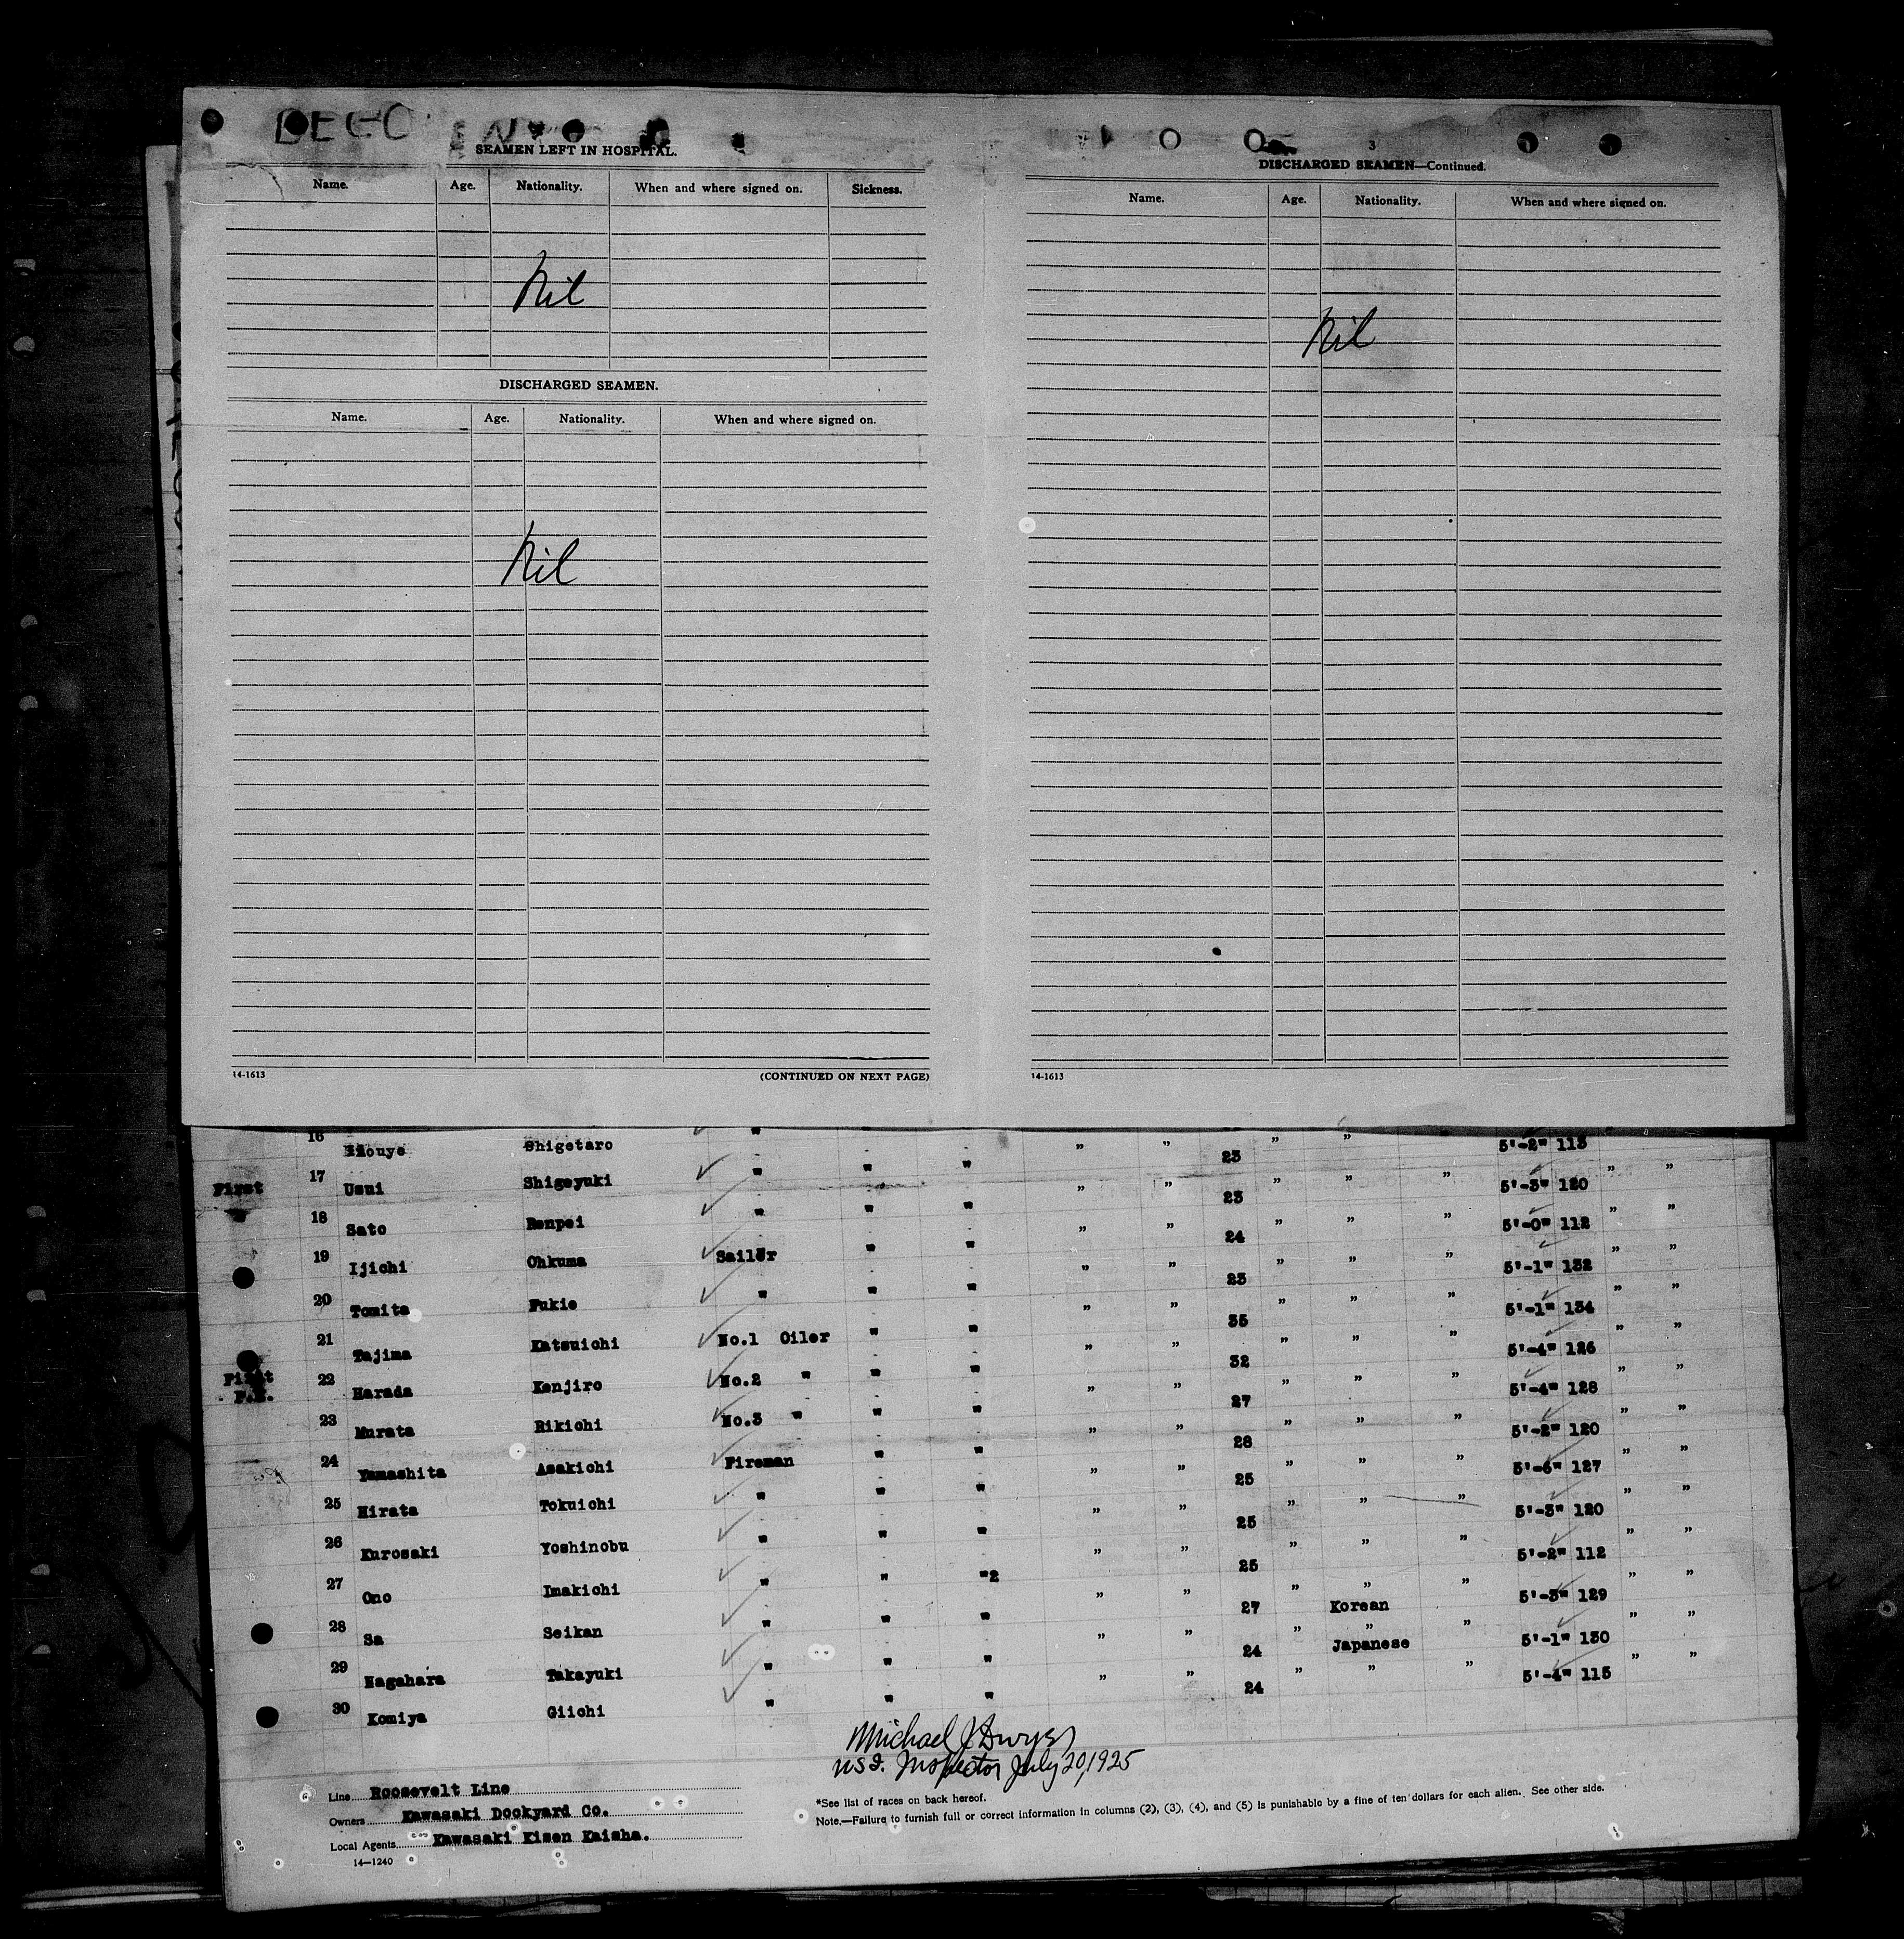 SEAMEN LEFT IN HOSPITAL.
Name. Age. Nationality. When and where signed on. Sickness.
Nil
DISCHARGED SEAMEN.
Name. Age. Nationality. When and where signed on.
Nil
14-1613 (CONTINUED ON NEXT PAGE)
3
DISCHARGED SEAMEN—Continued.
Name. Age. Nationality. When and where signed on.
Nil
14-1613
16 Inouye Shigetaro " " " 23 " " 5'-2" 113
First 17 Usui Shigeyuki " " " " " 23 " " " 5'-3" 120 " "
18 Sato Renpei " " " " " 24 " " " 5'-0" 112 " "
19 Ijichi Ohkuma Sailor " " " " 23 " " " 5'-1" 132 " "
20 Tomita Fukie " " " " " 35 " " " 5'-1" 134 " "
21 Tajima Katsuichi No.1 Oiler " " " " 32 " " " 5'-4" 126 " "
First P.E. 22 Harada Kenjiro No.2 " " " " " 27 " " " 5'-4" 128 " "
23 Murata Rikichi No.3 " " " " " 28 " " " 5'-2" 120 " "
24 Yamashita Asakichi Fireman " " " " 25 " " " 5'-6" 127 " "
25 Hirata Tokuichi " " " " " 25 " " " 5'-3" 120 " "
26 Kurosaki Yoshinobu " " " " " 25 " " " 5'-2" 112 " "
27 Ono Imakichi " " "2 " " 27 " " " 5'-3" 129 " "
28 Sa Seikan " " " " " 24 " Korean " 5'-1" 130 " "
29 Nagahara Takayuki " " " " " 24 " Japanese " 5'-4" 115 " "
30 Komiya Giichi " " "
Michael J. Dwyer
U.S.I. Inspector July 20, 1925
Line Roosevelt Line
Owners Kawasaki Dockyard Co.
Local Agents Kawasaki Kisen Kaisha.
14—1240
*See list of races on back hereof.
Note.—Failure to furnish full or correct information in columns (2), (3), (4), and (5) is punishable by a fine of ten dollars for each alien. See other side.